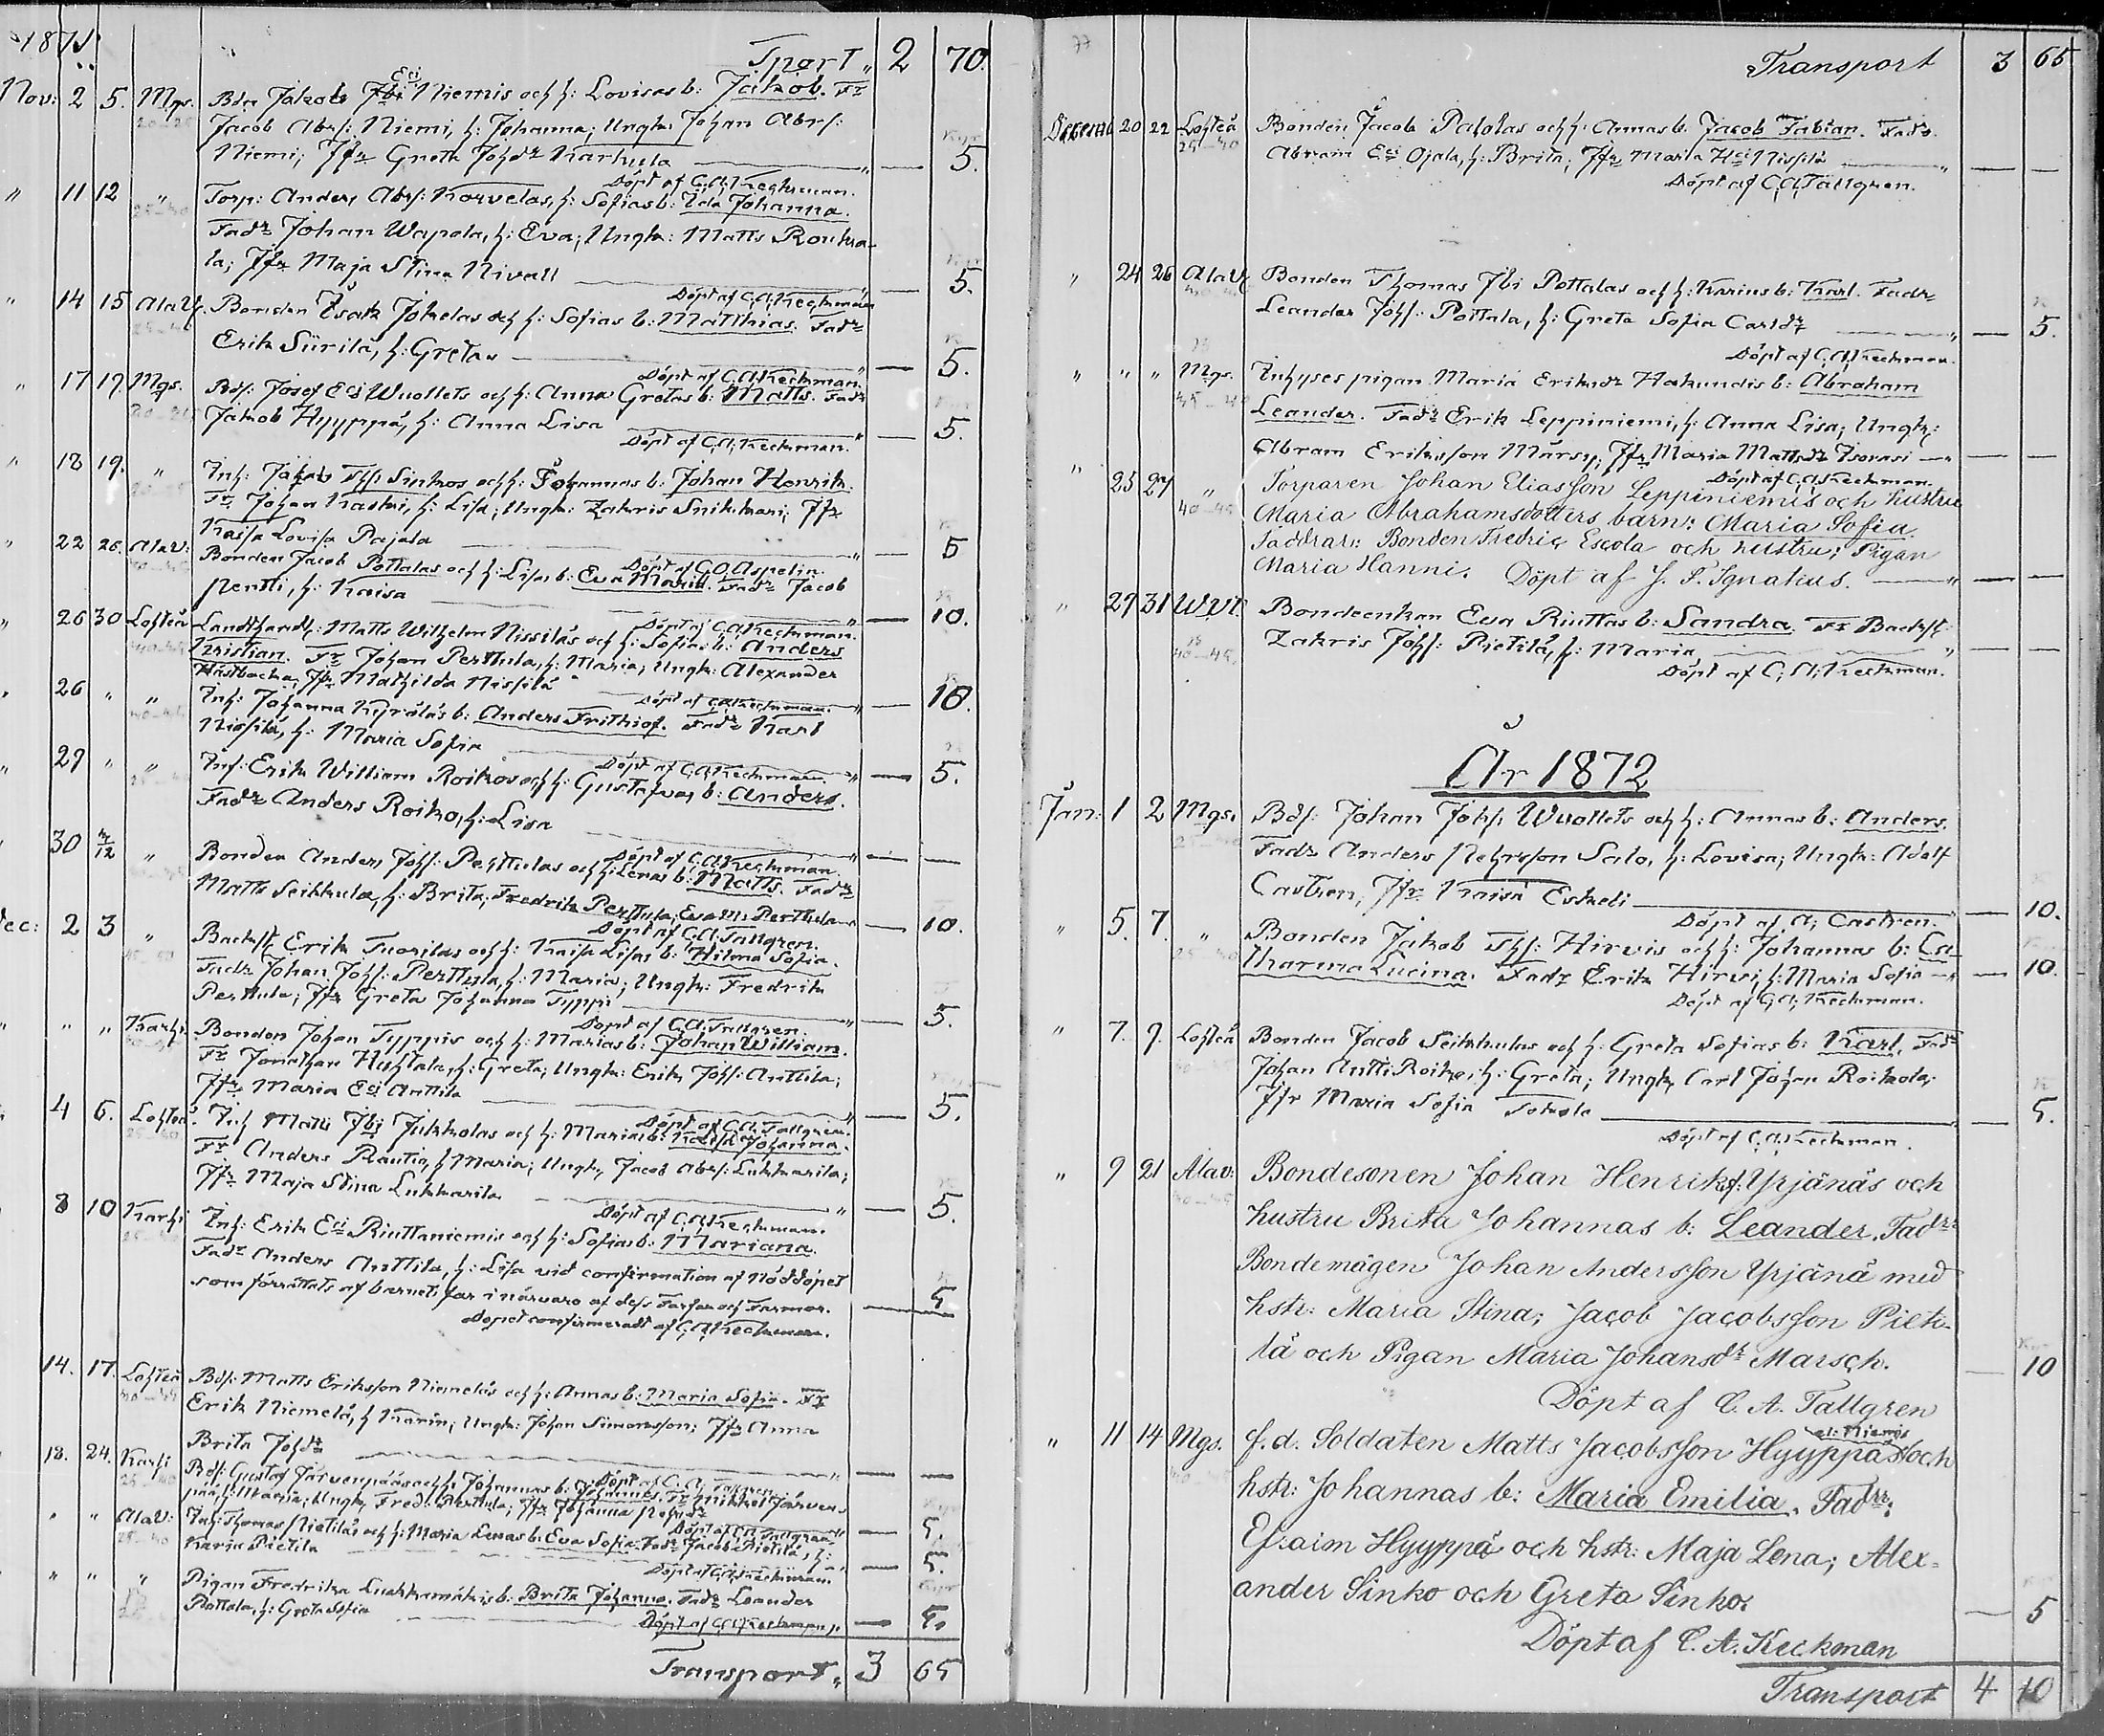 1871.
Tport „ 2 70.
Nov: 2 5. Mgs. Bdn Jakob Jbi Eci Niemis och h: Lovisas b: Jakob. Fr
20-25
Jacob Abrs: Niemi, h: Johanna; Ungk: Johan Abrs:
Niemi; Jfr Greta Johdr Karhula — 5.
Döpt af C.A. Keckman.
„ 11 12 „ Torp: Anders Abrs: Korvelas, h: Sofias b: Ida Johanna.
25-30
Fadr Johan Wapola, h: Eva; Ungk: Matts Rouka-
la; Jfr Maja Stina Nivall — 5.
Döpt af C.A. Keckman
„ 14 15 Alav. Bonden Isak Jokelas och h: Sofias b: Matthias. Fadr
Erik Siirilä, h: Greta — 5.
Döpt af C.A. Keckman.
„ 17 19. Mgs. Bds: Josef Eci Wuollets och h: Anna Gretas b: Matts. Fadr
Jakob Hyyppä, h: Anna Lisa — 5.
Döpt af C.A. Keckman.
„ 18 19. „ Inh: Jakob Ths: Sinkos och h: Johannas b: Johan Henrik.
Fr Johan Kaski, h: Lisa; Ungk: Zakris Snikkari; Jfr
Kaisa Lovisa Pajala — 5
Döpt af C.O. Aspelin.
„ 22 26. Alav: Bonden Jacob Pottalas och h: Lisas b: Eva Maria. Fadr Jacob
Pentti, h: Kaisa — 10.
Döpt af C.A. Keckman.
„ 26 30 Lohteå Landthandl: Matts Wilhelm Nissiläs och h: Sofias b: Anders
Kristian. Fr Johan Perttula, h: Maria; Ungk: Alexander
Hästbacka; Jfr Mathilda Nissilä — 10.
Döpt af C.A. Keckman.
„ 26 „ „ Inh: Johanna b: Anders Frithiof. Fadr Karl
Nissilä, h: Maria Sofia — 5.
Döpt af C.A. Keckman.
„ 29 „ „ Inh: Erik William Roikos och h: Gustafvas b: Anders.
Fadr Anders Roiko, h: Lisa — —
Döpt af C.A. Keckman.
„ 30 3/12 „ Bonden Anders Johs: Perttulas och h: Lenas b: Matts. Fadr
Matts Seikkula, h: Brita; Fredrik Perttula; Eva M: Perttula — 10.
Döpt af C.A. Tallgren.
Dec: 2 3 „ Backst: Erik Tuorilas och h: Kaisa Lisas b: Hilma Sofia.
Fadr Johan Johs: Perttula, h: Maria; Ungk: Fredrik
Perttula; Jfr Greta Johanna Typpi — 5.
Döpt af C.A. Tallgren.
„ „ „ Karhi. Bonden Johan Typpis och h: Marias b: Johan William.
Fr Jonathan Huhtala, h: Greta; Ungk: Erik Johs: Anttila;
Jfr Maria Eci Anttila — 5.
Döpt af C.A. Tallgren.
„ 4 6. Lohteå. Inh Matts Jbi Jukkolas och h: Marias b: Kaisa Johanna.
Fr Anders Rautio, h Maria; Ungk: Jacob Abrs: Lukkarila;
Jfr Maja Stina Lukkarila — 5.
Döpt af C.A. Keckman.
8 10 Karhi Inh: Erik Eci Riuttaniemis och h: Sofias b: Mariana.
Fadr Anders Anttila, h: Lisa vid confirmation af nöddopet
som förrättats af barnets far i närvaro af dess Farfar och Farmor. — 5
Dopet confirmeradt af C.A. Keckman.
14. 17. Lohteå Bds: Matts Eriksson Niemeläs och h: Annas b: Maria Sofia. Fr
Erik Niemelä, h Karin; Ungk: Johan Simonsson; Jfr Anna
Brita Johdr — —
Döpt af C.A. Tallgren.
18. 24. Karhi Bds: Gustaf Järvenpääs och h: Johannas b: Johannes. Fr Mikkel Järven-
pää, h: Maria; Ungk: Fredr: Perttula; Jfr Johanna — 5.
Döpt af C.A. Tallgren
„ „ Alav: Inh: Thomas Pietiläs och h: Maria Lenas b: Eva Sofia. Fadr Jacob Pietilä, h:
Karin Pietilä — 5.
Döpt af C.A. Keckman.
„ „ „ Pigan Fredrika Luokkamäkis b: Brita Johanna. Fadr Leander
Pottala, h: Greta Sofia — 5.
Döpt af C.A. Keckman.
Transport „ 3 65
77
Transport 3 65
Decemb 20 22 Lohteå Bonden Jacob Paholas och h: Annas b. Jacob Fabian. Fadr.
25-30
Abram Eci Ojala, h: Brita; Jfr Maria Hci Nissilä — —
Döpt af C.A. Tallgren.
„ 24 26 Alav Bonden Thomas Jbi Pottalas och h: Karins b: Karl. Fadr
Leander Johs: Pottala, h: Greta Sofia Carldr — 5.
Döpt af C.A. Keckman.
„ „ „ Mgs. Inhyses pigan Maria Eriksdr Hakundis b: Abraham
Leander. Fadr Erik Leppiniemi, h: Anna Lisa; Ungk:
Abram Eriksson Märsy; Jfr Maria Mattsdr Isovasi — —
Döpt af C.A. Keckman.
„ 25 27 „ Torparen Johan Eliasson Leppiniemis och hustru
40-45
Maria Abrahamsdotters barn: Maria Sofia.
Faddrar: Bonden Fredric Escola och hustru; Pigan
Maria Hanni. Döpt af J. F. Ignatius. — —
„ 29 31 WVl: Bondeenkan Eva Riuttas b: Sandra. Fr Backst:
40-45
Zakris Johs: Pietilä, h: Maria — —
Döpt af C.A. Keckman.
År 1872
Jan: 1 2 Mgs. Bds: Johan Johs: Wuollets och h: Annas b: Anders.
Fadr Anders Pehrsson Salo, h: Lovisa; Ungk: Adolf
Castren, Jfr. Kaisa Eskeli — 10.
Döpt af A. Castren.
„ 5. 7. „ Bonden Jakob Ths: Hirvis och h: Johannas b: Ca-
tharina Lucina. Fadr Erik Hirvi, h: Maria Sofia — 10.
Döpt af C.A. Keckman.
„ 7. 9. Lohteå Bonden Jacob Seikkulas och h: Greta Sofias b: Karl. Fadr
Johan Antti Roiko, h: Greta; Ungk. Carl Johan Roikola;
Jfr Maria Sofia Tokola — 5.
Döpt af C.A. Keckman.
„ 9 21 Alav: Bondesonen Johan Henriks: Yrjänäs och
hustru Brita Johannas b: Leander. Fadr:
Bondemågen Johan Andersson Yrjänä med
hstr: Maria Stina; Jacob Jacobsson Pieti-
lä och Pigan Maria Johansdr Marsch. — 10
Döpt af C. A. Tallgren
el: Niemis
„ 11 14 Mgs. f. d. Soldaten Matts Jacobsson Hyyppä och
hstr: Johannas b: Maria Emilia. Fadrr:
Efraim Hyyppä och hstr: Maja Lena; Alex-
ander Sinko och Greta Sinko. — 5
Döpt af C. A. Keckman
Transport 4 10